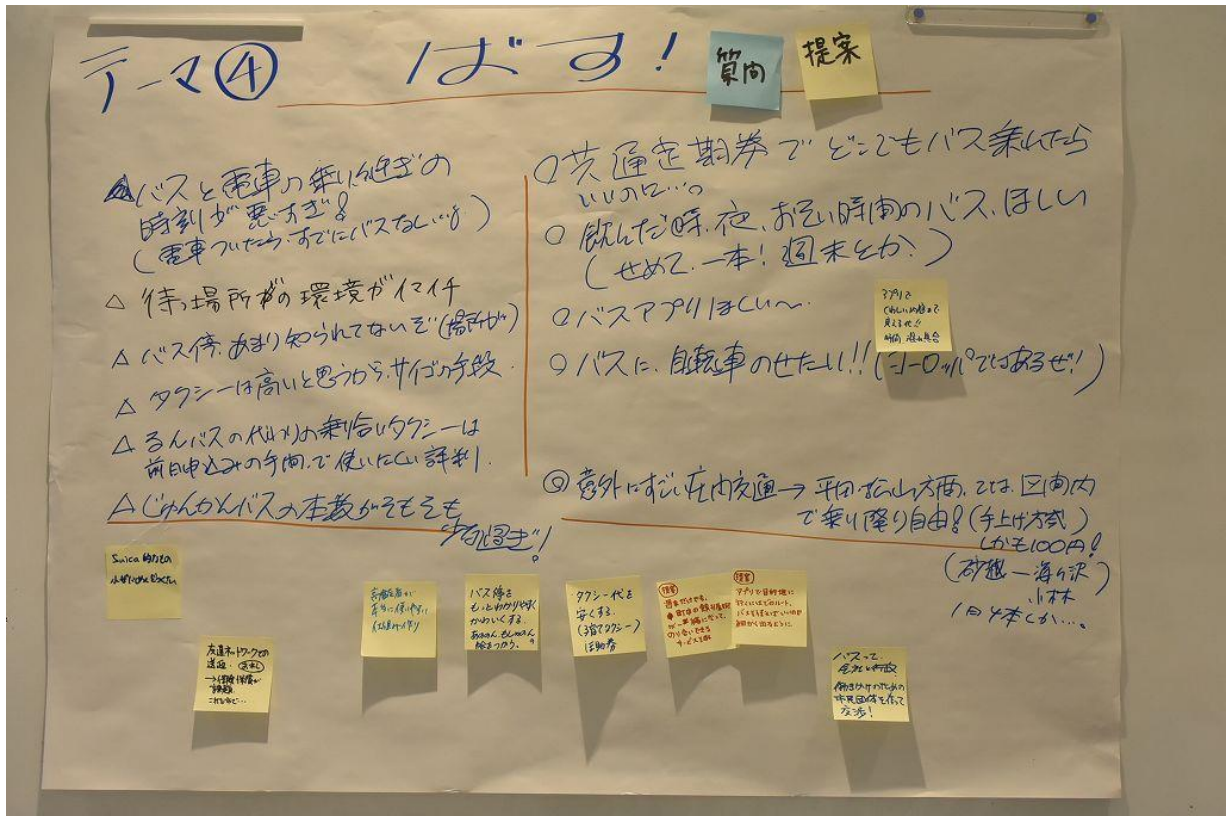 テーマ④ ばす!
質問
提案
△バスと電車の乗り継ぎの
時刻が悪すぎ!
(電車ついたら、すでにバスなし…!)
△ 待つ場所の環境がイマイチ
△ バス停、あまり知られてないぞ(場所が)
△ タクシーは高いと思うから、サイゴの手段
△ るんバスの代わりの乗り合いタクシーは
前日申込みの手間、で使いにくい評判.
△じゅんかんバスの本数がそもそも
少な過ぎ!
○共通定期券でどこでもバス乗れたら
いいのに…。
○ 飲んだ時、夜、おそい時間のバス、ほしい
(せめて、一本!週末とか?)
○バスアプリほしい〜.
○バスに、自転車のせたい!!(ヨーロッパではあるぜ!)
アプリで
見える化!!
時間、混み具合
◎意外にすごい庄内交通→平田・松山方面、では、区間内
で乗り降り自由!(手上げ方式)
しかも100円!
(砂越―海ヶ沢)
小林
1日4本しか…。
Suica 的なもの
友達ネットワークでの
送迎.
→保険・保償が
課題
これもなど…
高齢者が
本当に使いやすい
仕組み作り
バス停を
もっとわかりやすく
かわいくする.
絵をつかう。
タクシー代を
安くする.
(子育てタクシー)
補助券
提案
週末だけでも、
のり合いできる
サービスを
提案
アプリで目的地に
行くにはどのルート、
バスを使えばいいのか
細かく出るように
バスって、
会社と行政
働きかけのための
市民団体を作って
交渉!